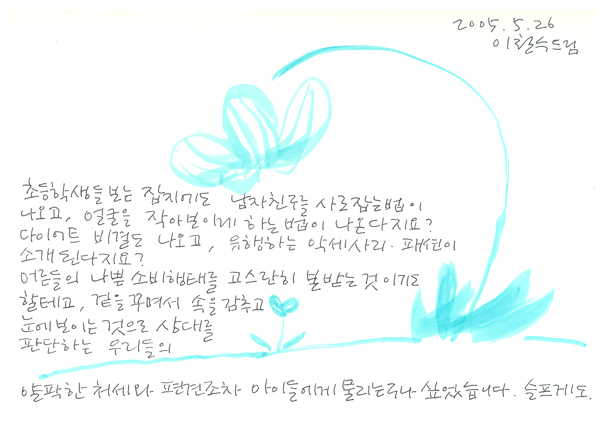 2005.5.26
이철수드림
초등학생들 보는 잡지에도 남자친구를 사로잡는법이
나오고, 얼굴을 작아보이게 하는 법이 나온다지요?
다이어트 비결도 나오고, 유행하는 악세사리·패션이
소개된다지요?
어른들의 나쁜 소비행태를 고스란히 본받는 것이기도
할테고, 겉을 꾸며서 속을 감추고
눈에보이는 것으로 상대를
판단하는 우리들의
얄팍한 처세와 편견조차 아이들에게 물리는구나 싶었습니다. 슬프게도.